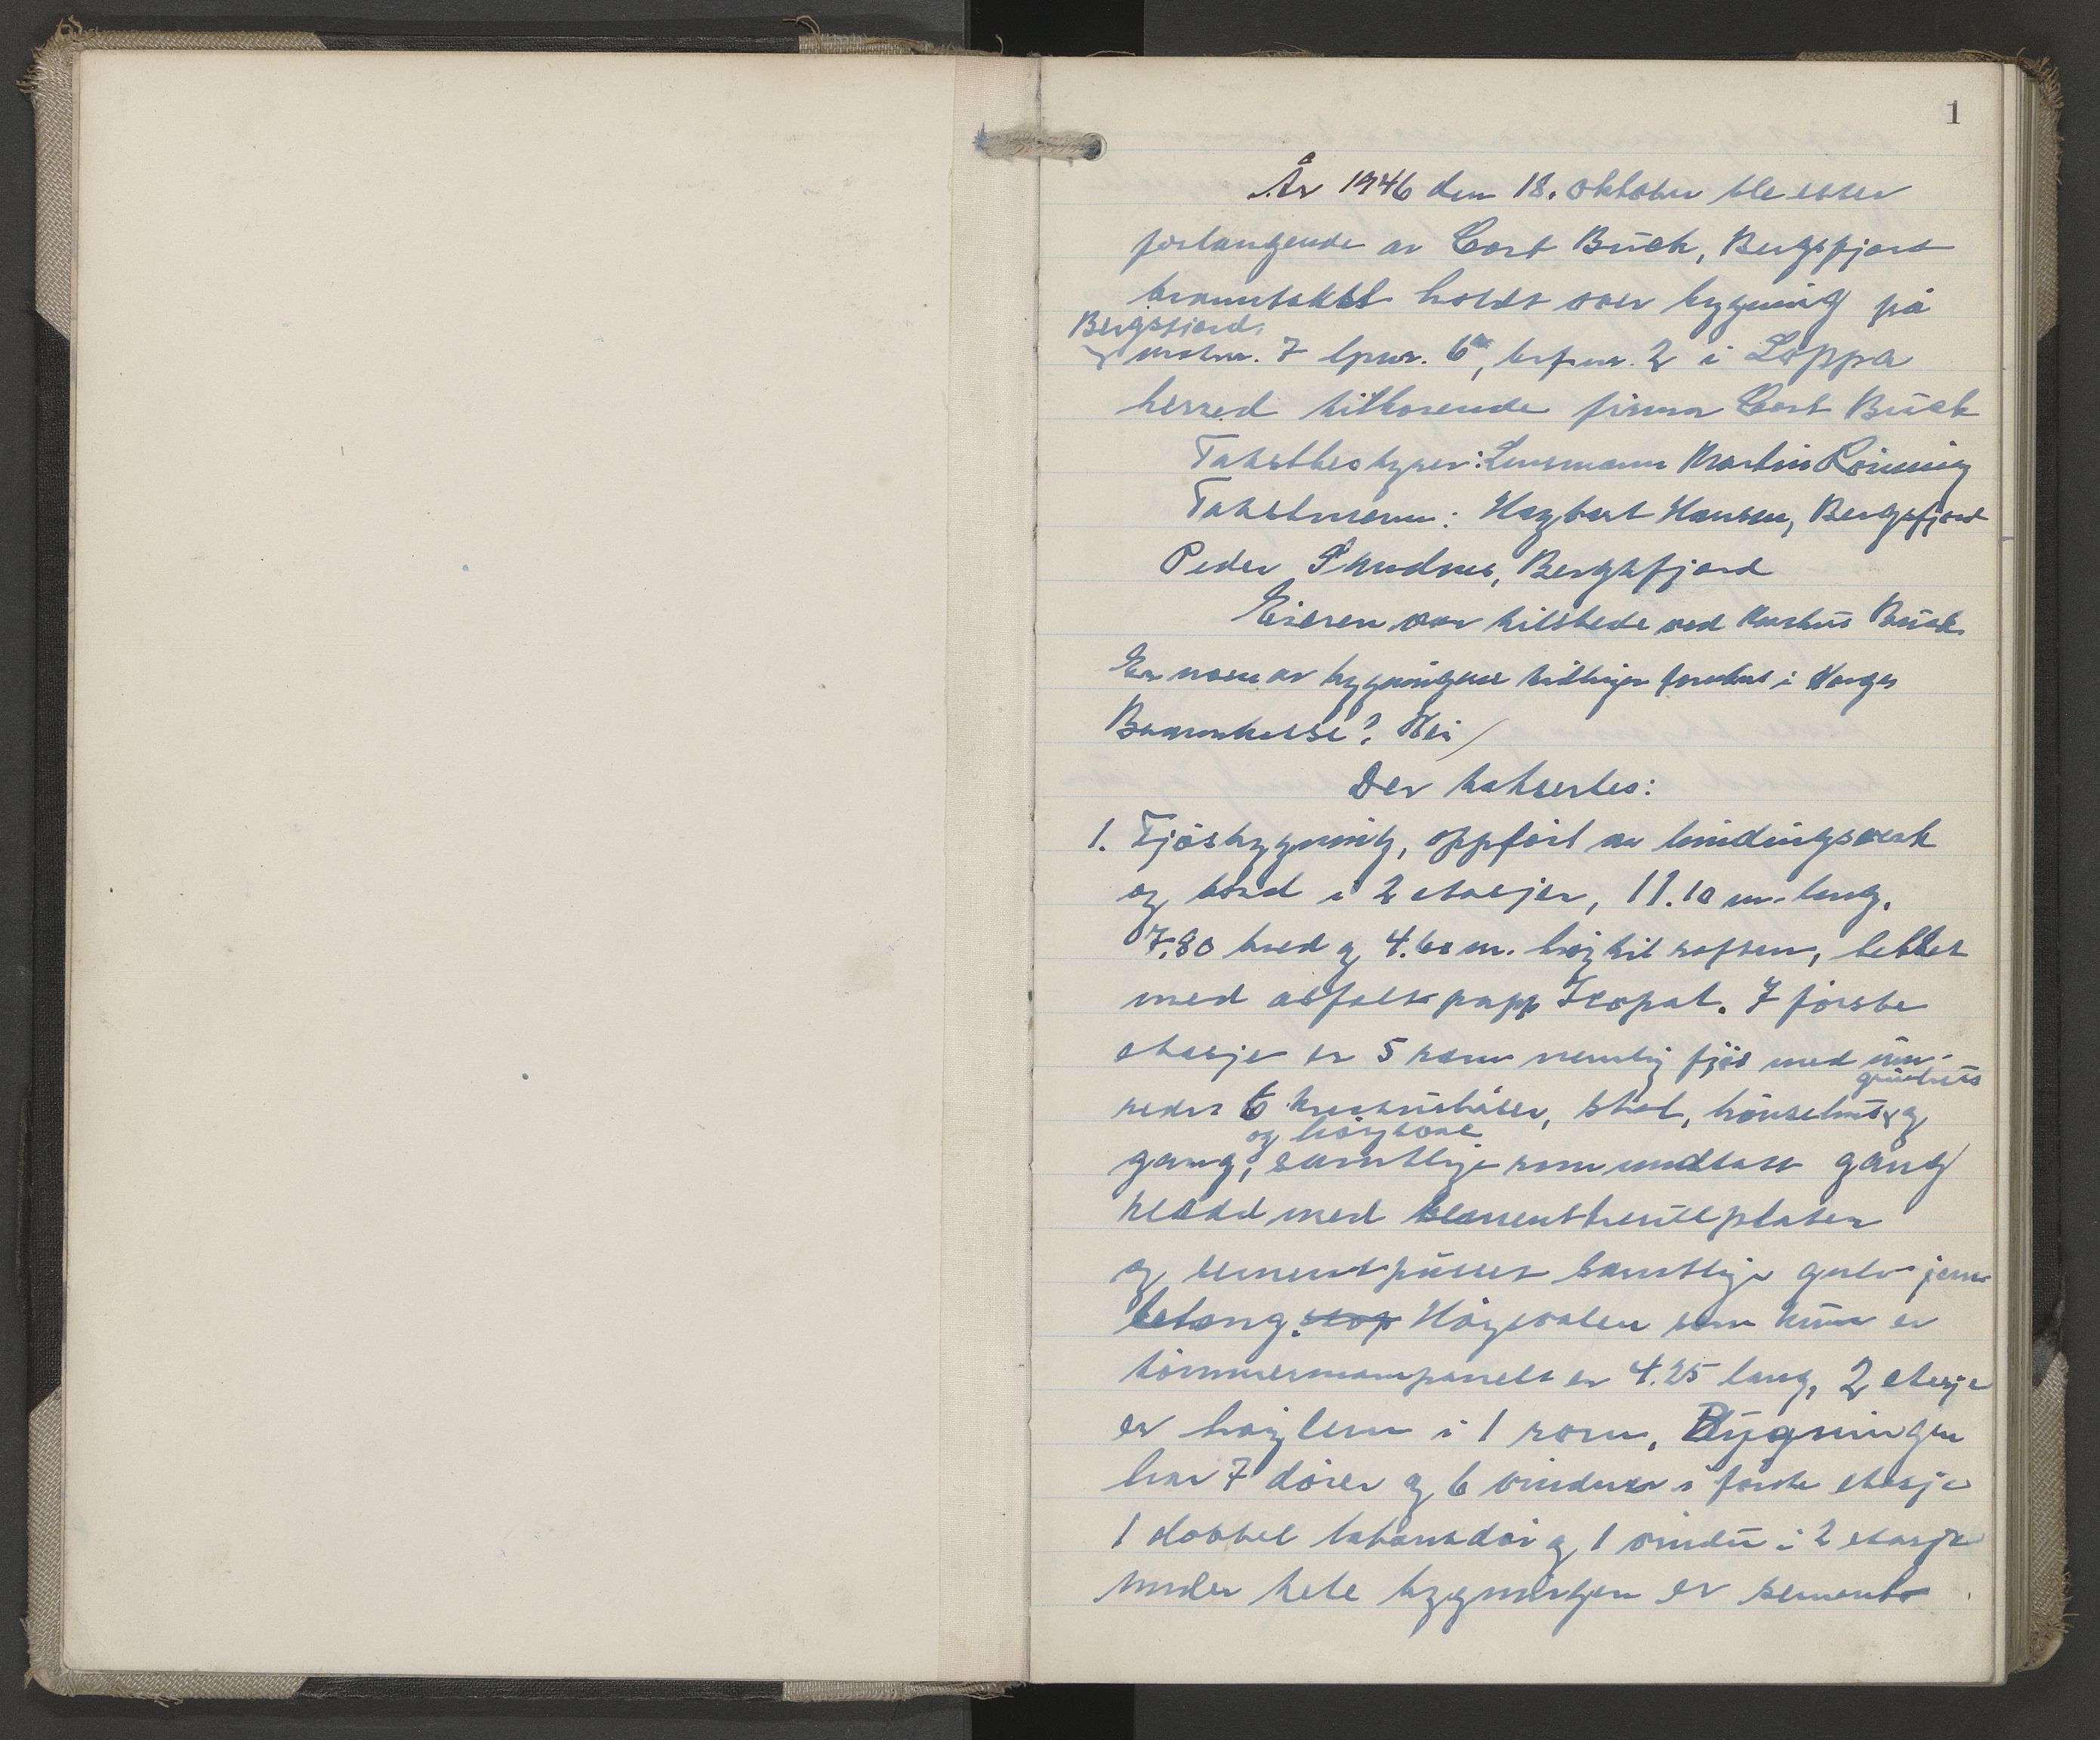 1
År 1946 den 18. oktober ble etter
forlangende av Cort Buck, Bergsfjord
branntakst holdt over bygning på
Bergsfjord,
matr.nr. 7 lpnr. 6a, brf.nr. 2 i Loppa
herred tilhørende firma Cort Buck
Takstbestyrer: Lensmann Martin Rönning
Takstmenn: Hagbart Hansen, Bergsfjord
Peder Sandnes, Bergsfjord
Eieren var tilstede ved Buck
Er noen av bygningene tidligere forsikret i Norges
Brannkasse? Nei
Der taksertes:
1. Fjösbygning, oppfört av bindingsverk
og bord i 2 etasjer, 11.10 m. lang,
7.80 bred og 4.60 m. höy til raften, tekket
med asfalt papp Icopal. I förste
etasje er 5 rom nemlig fjös med inn-
redet 6 båser, stal, hönsehus og
grisehus
og höysvale
gang, samtlige rom undtatt gang
kledd med plater
og sementpusset samtlige gulv jern
betong. Höysvalen som kun er
tömmermannspanelt er 4.25 lang, 2 etasje
er höylem i 1 rom. Bygningen
har 7 dörer og 6 vinduer i förste etasje
1 dobbel dör og 1 vindu i 2 etasje
under hele bygningen er sement